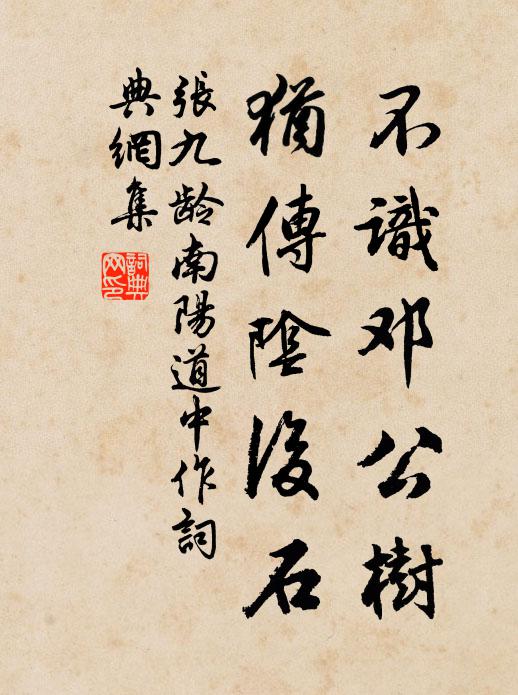 不識邓公樹
猶傳陰後石
張九龄南陽道中作詞
典網集
詞典网印